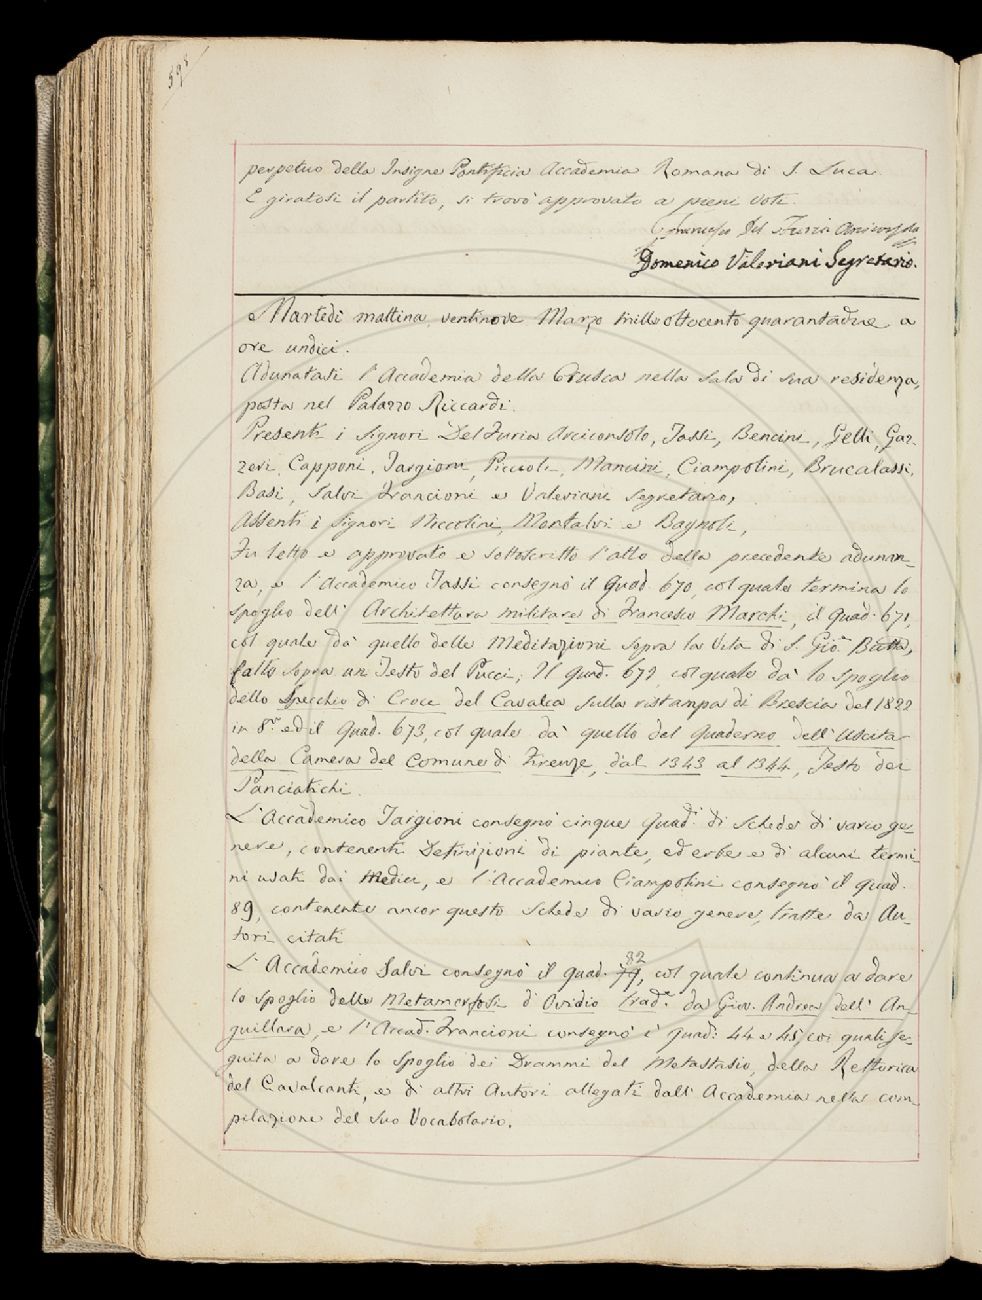 598
perpetuo della Insigne Pontificia Accademia Romana di S. Luca.
E giratosi il partito, si trovò approvato a pieni voti.
Francesco Del Furia Arciconsolo
Domenico Valeriani Segretario.
Martedì mattina ventinove Marzo mille ottocento quarantadue a
ore undici.
Adunatasi l'Accademia della Crusca nella sala di sua residenza,
posta nel Palazzo Riccardi.
Presenti i Signori Del Furia Arciconsolo, Tassi, Bencini, Gelli, Gaz-
zeri, Capponi, Targioni, Piccioli, Mancini, Ciampolini, Brucalassi,
Basi, Salvi Francioni e Valeriani Segretario,
Assenti i Signori Niccolini, Montalvi e Bagnoli,
Fu letto e approvato e sottoscritto l'atto della precedente adunan-
za, e l'Accademico Tassi consegnò il Quad. 670, col quale termina lo
spoglio dell' Architettura militare di Francesco Marchi, il quad. 671,
col quale dà quello delle Meditazioni sopra la Vita di S. Gio. Batta,
fatto sopra un Testo del Pucci; Il Quad. 672 col quale dà lo spoglio
dello Specchio di Croce del Cavalca sulla ristampa di Brescia del 1822
in 8.º ed il Quad. 673, col quale dà quello del Quaderno dell'Uscita
della Camera del Comune di Firenze, dal 1343 al 1344, Testo dei
Panciatichi.
L'Accademico Targioni consegnò cinque Quad.i di Schede di vario ge-
nere, contenenti Definizioni di piante, ed erbe e di alcuni termi-
ni usati dai Medici, e l'Accademico Ciampolini consegnò il Quad.
89, contenente ancor questo Schede di vario genere, tratte da Au-
tori citati
L'Accademico Salvi consegnò il Quad. 79, 82 col quale continua a dare
lo spoglio delle Metamorfosi di Ovidio trad.e da Giov. Andrea dell' An-
guillara, e l'Accad. Francioni consegnò i Quad: 44 e 45, coi quali se-
guita a dare lo Spoglio dei Drammi del Metastasio, della Rettorica
del Cavalcanti, e di altri Autori allegati dall' Accademia nella com-
pilazione del suo Vocabolario.